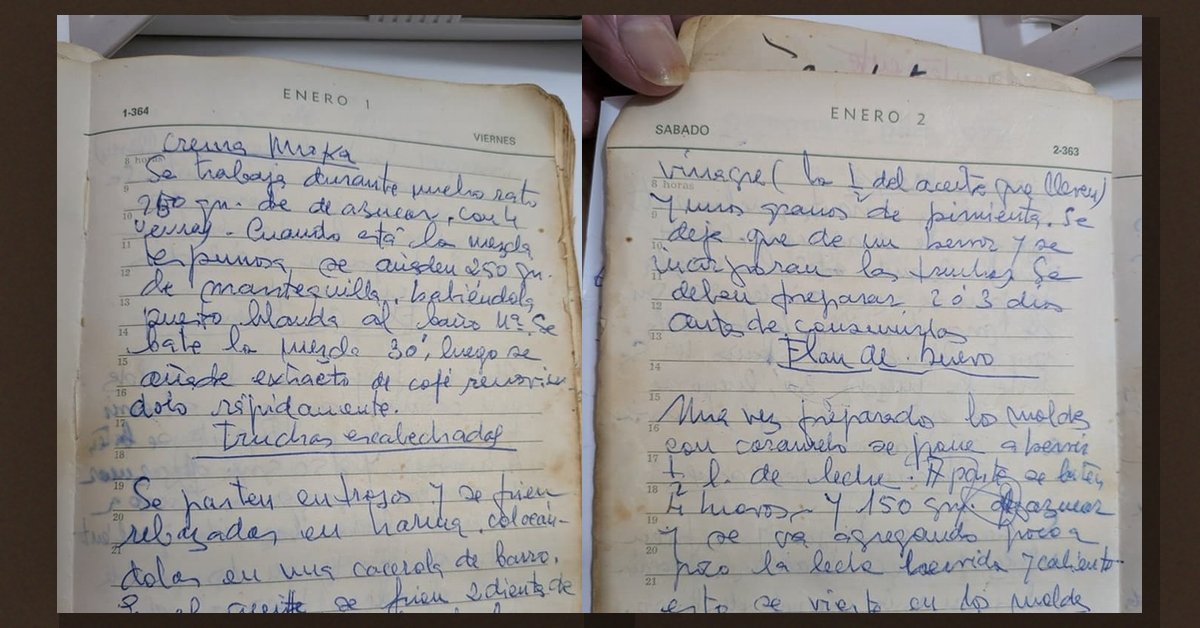 ENERO 1
1-364
VIERNES
Crema Moka
8 horas
Se trabaja durante mucho rato
9
250 gr. de de azucar, con 4
10
yemas. Cuando está la mezcla
11
espumosa, se añaden 250 gr.
12
de mantequilla, batiéndola
13
puesto blanda al baño Mª. Se
14
bate la mezcla 30', luego se
15
añade extracto de café removien
16
dolo rápidamente.
17
Truchas escabechadas
18
19
Se parten en trozos y se frien
20
rebozadas en harina, colocán-
21
dolas en una cacerola de barro.
el aceite se frien 2 dientes de
ENERO 2
SABADO
2-363
vinagre (la ½ del aceite que lleven)
8 horas
y unos granos de pimienta. Se
9
deja que de un hervor y se
10
incorporan las truchas. Se
11
deben preparar 2 ó 3 dias
12
antes de consumirlas
13
Flan de huevo
14
15
Una vez preparado los moldes
16
con caramelo se pone a hervir
17
½ l. de leche. Aparte se baten
18
4 huevos y 150 gr. de azucar
19
y se va agregando poco a
20
poco la leche hervida y caliente
21
esto se vierte en los moldes